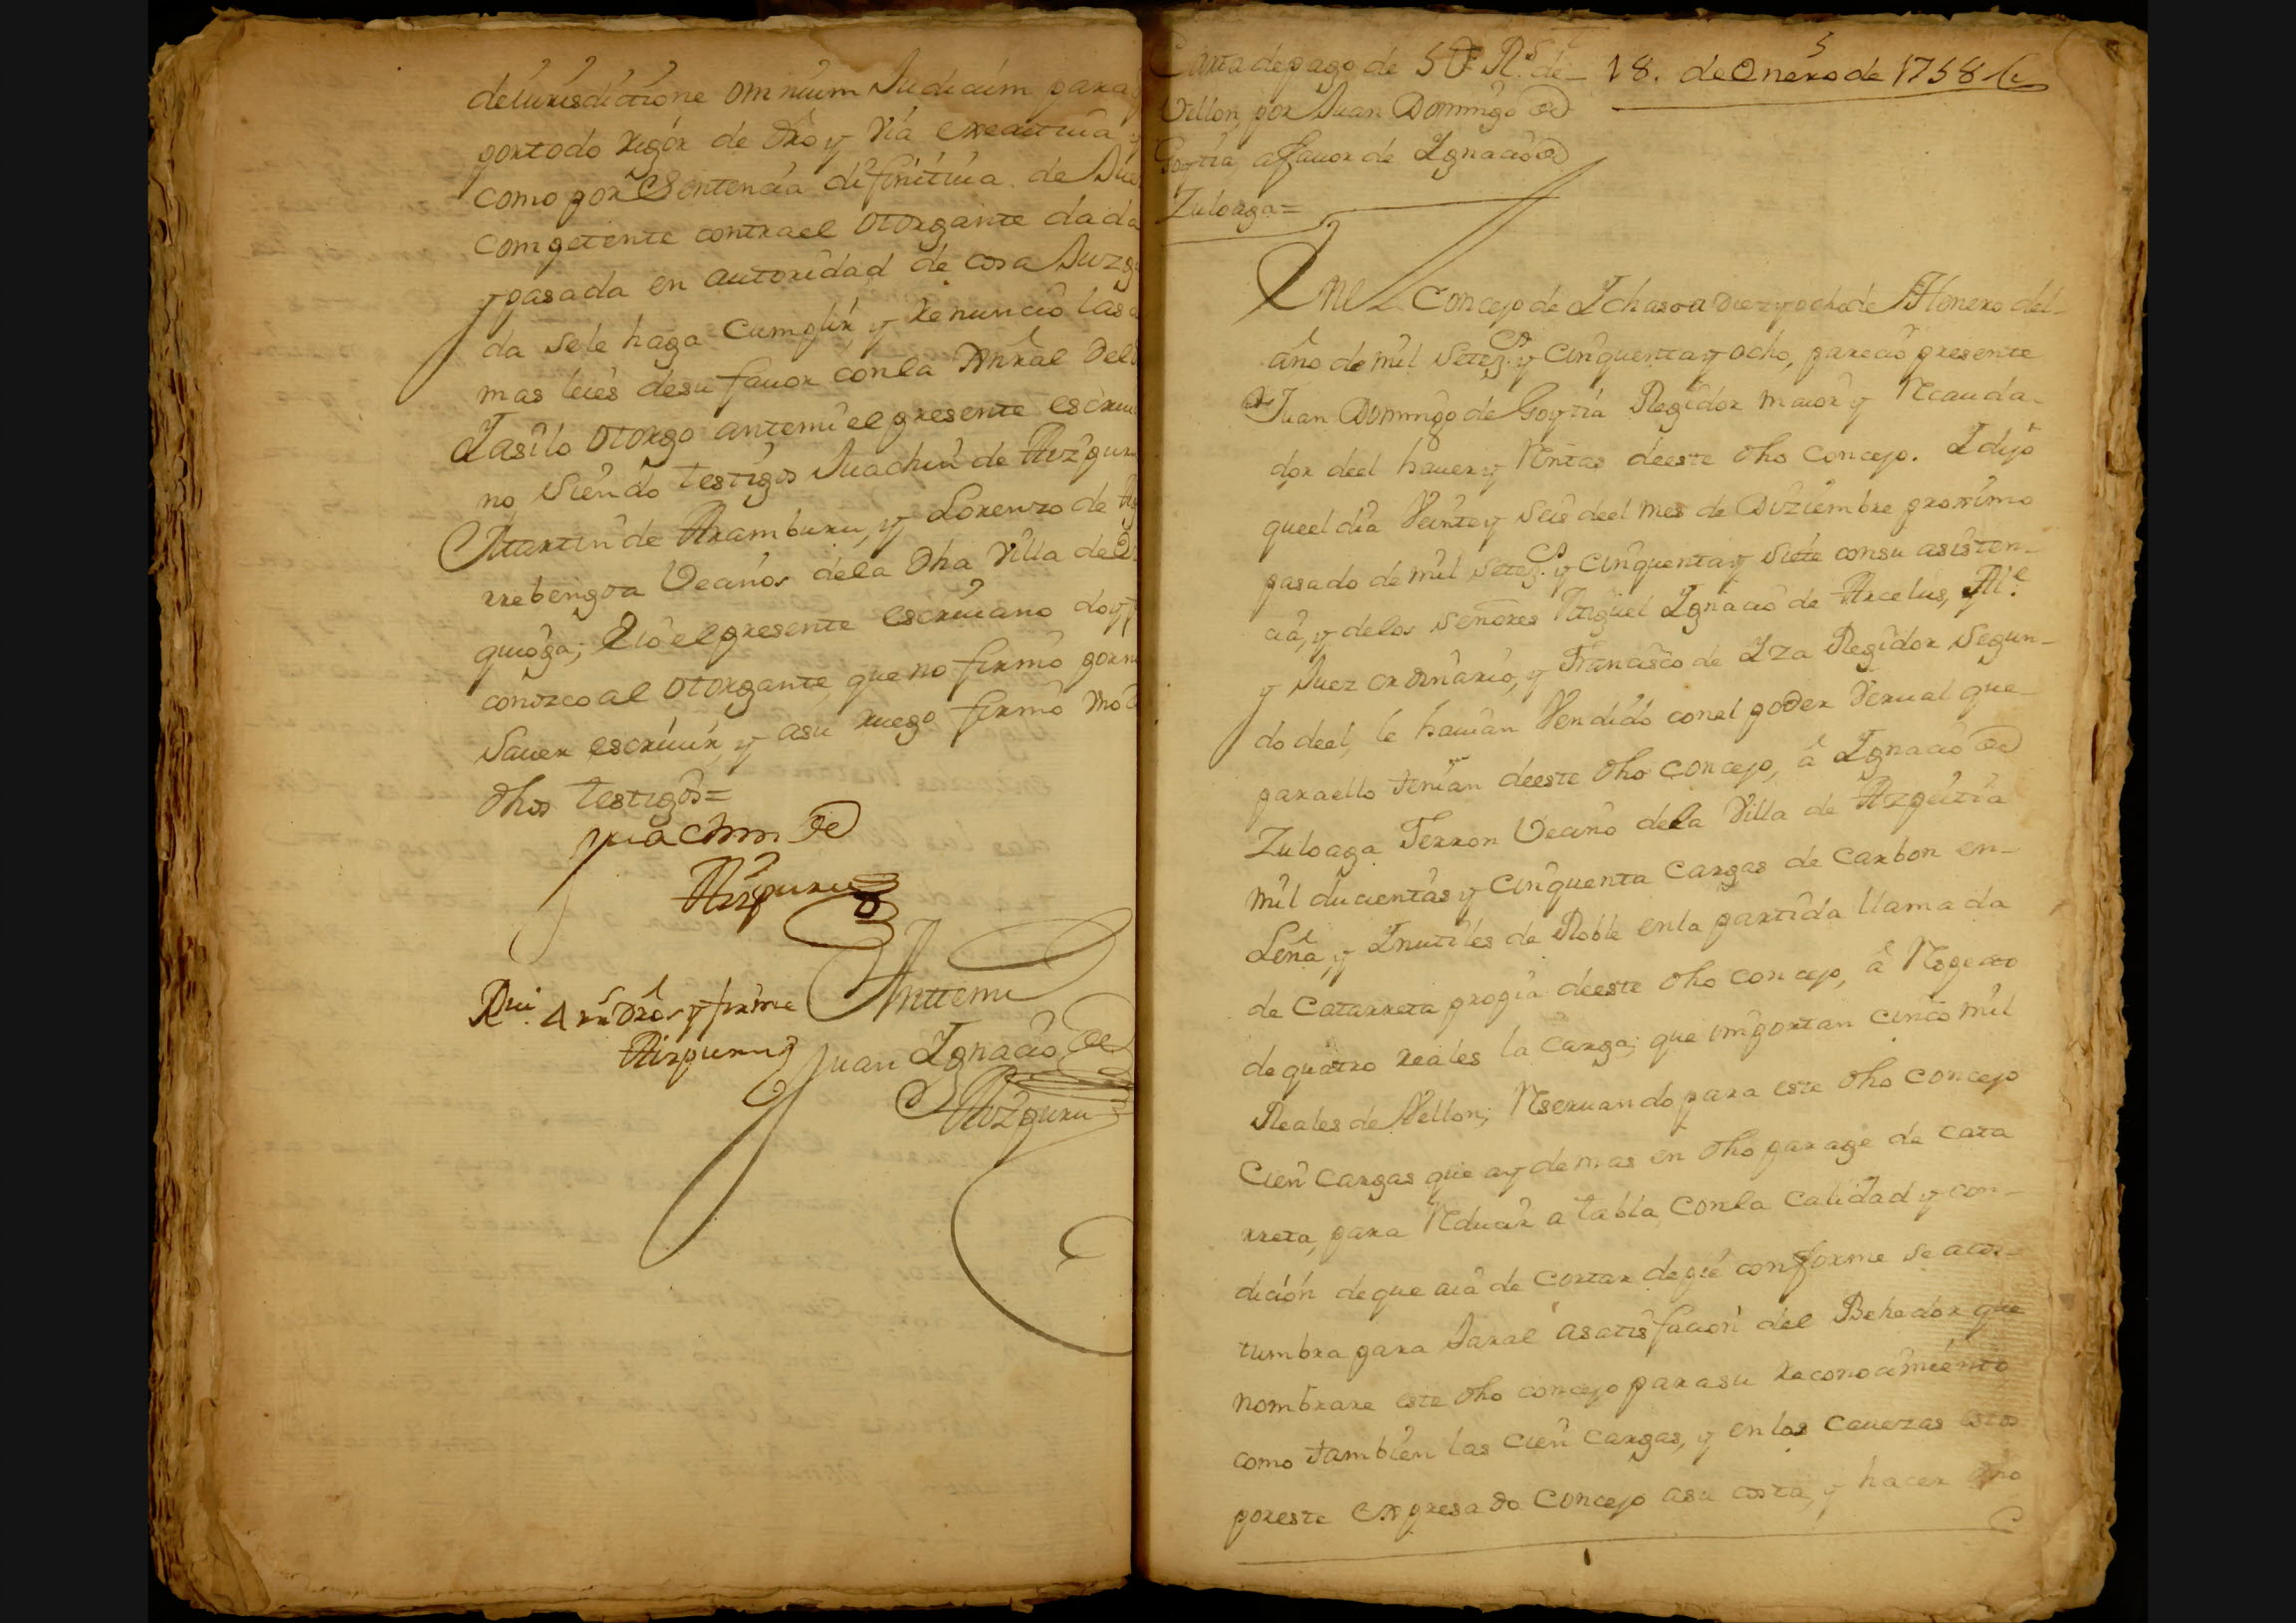 de iurisdictione omnium Judicum para
por todo rigor de dro y via executiua y
como por Sentencia difinitiua de Jue
competente contra el otorgante dada
y pasada en autoridad de cosa Juzga
da se le haga cumplir, y renunció las
mas leies de su fauor con la gnral del
Y asi lo otorgo ante mi el presente escriu
no siendo testigos Juachin de Aizpuru
Martin de Aramburu, y Lorenzo de
rrebengoa Vecinos de la dha Villa de
quioga; E io el presente escriuano doy f
conozco al otorgante, que no firmó por n
sauer escriuir, y a su ruego firmó vno d
dhos testigos=
Juachin de
Aizpuru
Antemi
Rui 4 rs dros y firme
Aizpuru
Juan Ignacio de
Aizpuru
5
Carta de pago de 5U Rs de
Vellon, por Juan Domingo de
Goytia, a fauor de Ignacio de
Zuloaga=
18. de Enero de 1758
En el Concejo de Ichaso a diez y ocho de Henero del
año de mil setezs y cinquenta y ocho, pareció presente
Juan Domingo de Goytia Regidor maior y Recauda-
dor deel hauer y Rentas de este dho concejo. Y dijo
que el dia Veinte y seis deel mes de Diziembre proximo
pasado de mil setezs y cinquenta y siete con su asisten-
cia, y de los señores Miguel Ignacio de Arcelus, Alle
y Juez ordinario, y Francisco de Iza Regidor segun-
do deel, le hauian Vendido con el poder Verual que
para ello tenian de este dho concejo, â Ignacio de
Zuloaga Ferron Vecino de la Villa de Azpeitia
mil ducientas y cinquenta cargas de carbon en
Leña, y Inutiles de Roble en la partida llamada
de Catarreta propia de este dho concejo, â Respecto
de quatro reales la carga; que importan cinco mil
Reales de Vellon; Reseruando para este dho concejo
Cien cargas que ay de mas en dho parage de cata
rreta, para Reducir a tabla, con la calidad y con-
dición de que aia de cortar de pie conforme se acos-
tumbra para Jaral a satisfacion del Behedor que
nombrare este dho concejo para su reconocimiento
como tambien las cien cargas, y en las cauezas estos
por este expresado concejo a su costa, y hacer